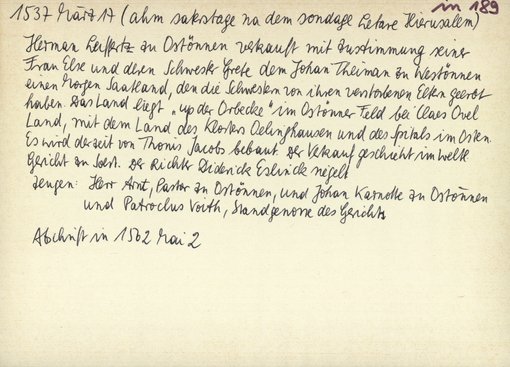 in 189
1537 März 17 (ahm saterstage na dem sondage Letare Hierusalem)
Herman Leiffertz zu Ostönnen verkauft mit Zustimmung seiner
Frau Else und deren Schwester Grete dem Johan Theiman zu Westönnen
einen Morgen Saatland, den die Schwestern von ihren verstorbenen Eltern geerbt
haben. Das Land liegt „up der Orbecke" im Ostönner Feld bei Claes Ovel
Land, mit dem Land des Klosters Oelinghausen und des Spitals im Osten.
Es wird derzeit von Thonis Jacobs bebaut. Der Verkauf geschieht im weltl.
Gericht zu Soest. Der Richter Diderick Eslincke siegelt
Zeugen: Herr Arnt, Pastor zu Ostönnen, und Johan Karnotte zu Ostönnen
und Patroclus Voith, Standgenosse des Gerichts
Abschrift in 1562 Mai 2